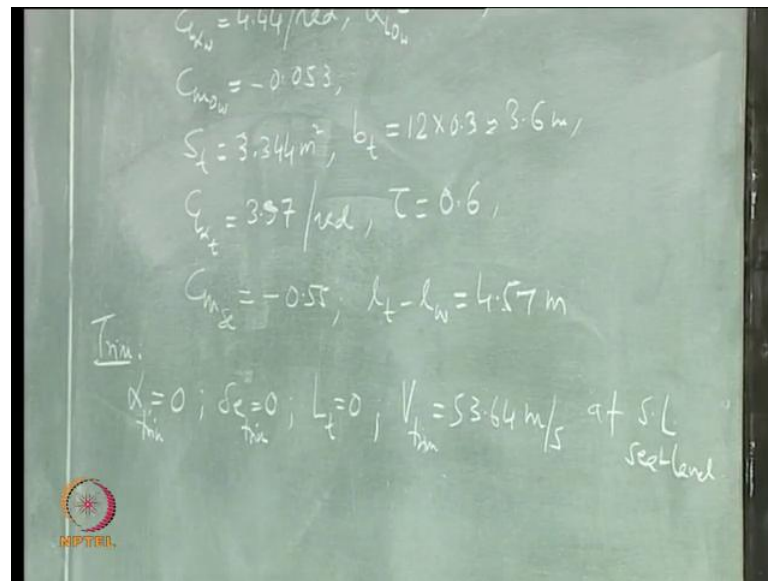 C_{Lα_w} = 4.44/rad, α_{L0_w}
C_{m0_w} = -0.053,
S_t = 3.344 m², b_t = 12×0.3 = 3.6 m,
C_{Lα_t} = 3.97/rad, τ = 0.6,
C_{mδe} = -0.55; l_t - l_w = 4.57 m
Trim.
α_{trim} = 0; δe_{trim} = 0; L_t = 0, V_{trim} = 53.64 m/s at S.L
Sea-Level
NPTEL